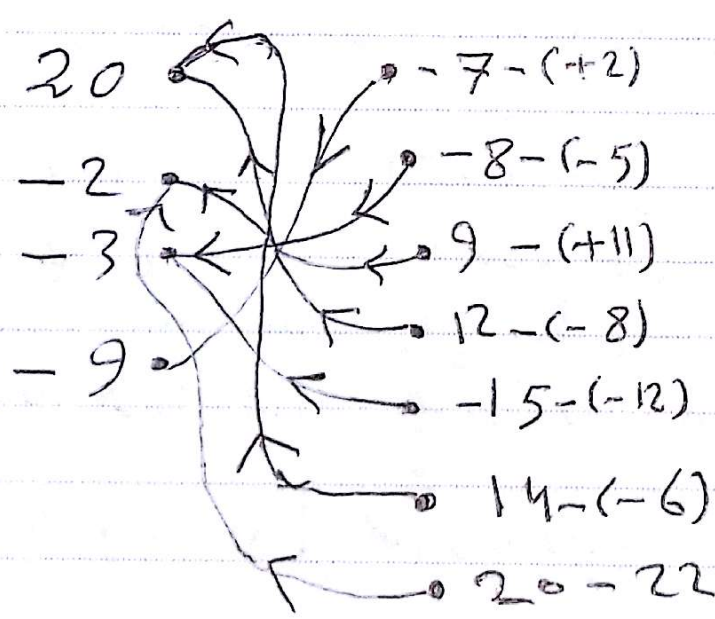 20
-2
-3
-9
-7-(+2)
-8-(-5)
9-(+11)
12-(-8)
-15-(-12)
14-(-6)
20-22